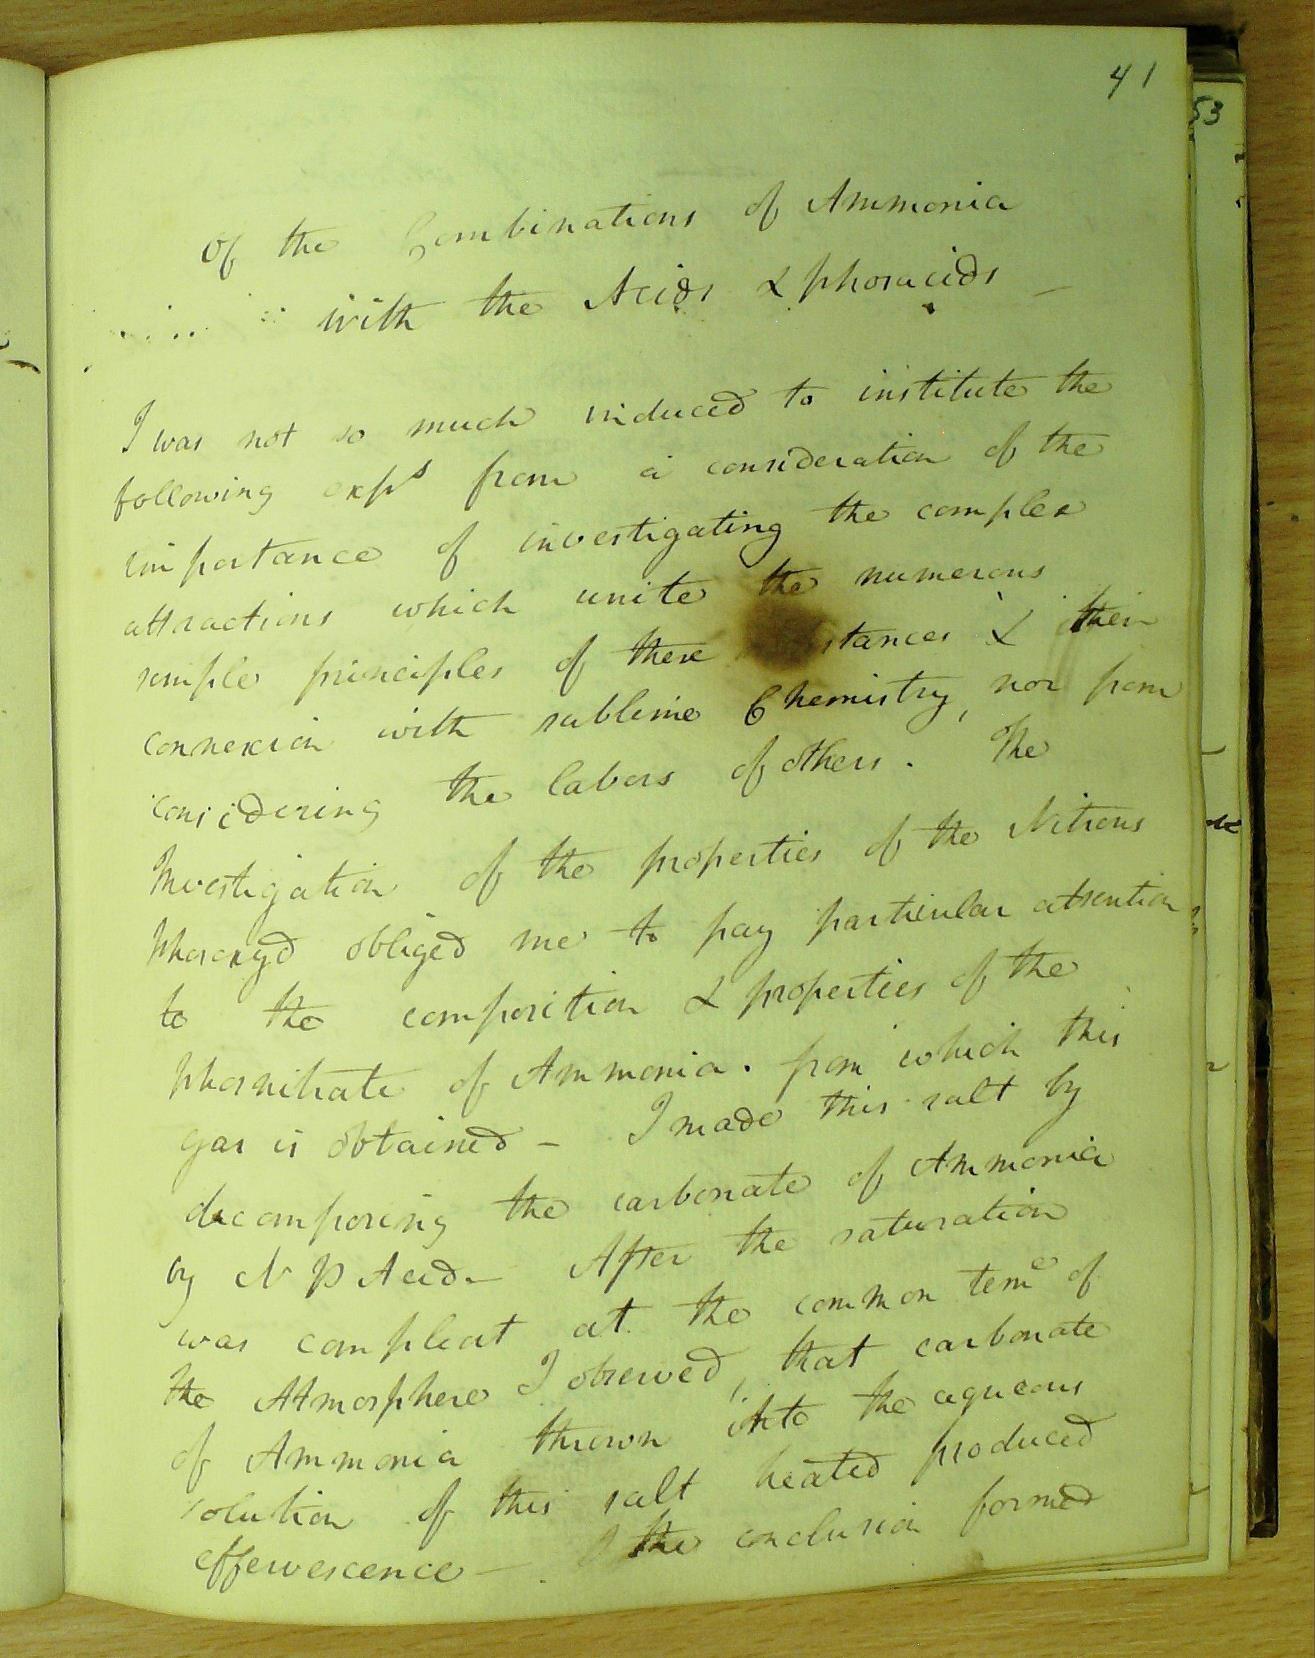 41
Of the Combinations of Ammonia
with the Acids & phosacids -
I was not so much induced to institute the
following exps from a consideration of the
importance of investigating the complex
attractions which unite the numerous
simple principles of these stances & their
connexion with sublime Chemistry, nor from
considering the labors of others. The
Investigation of the properties of the Nitrous
phosoxyd obliged me to pay particular attention
to the composition & properties of the
phosnitrate of Ammonia. from which this
gas is obtained - I made this salt by
decomposing the carbonate of Ammonia
by N P Acid - After the saturation
was compleat at the common teme of
the Atmosphere I observed, that carbonate
of Ammonia thrown into the aqueous
solution of this salt heated produced
effervescence - the conclusion formed
53